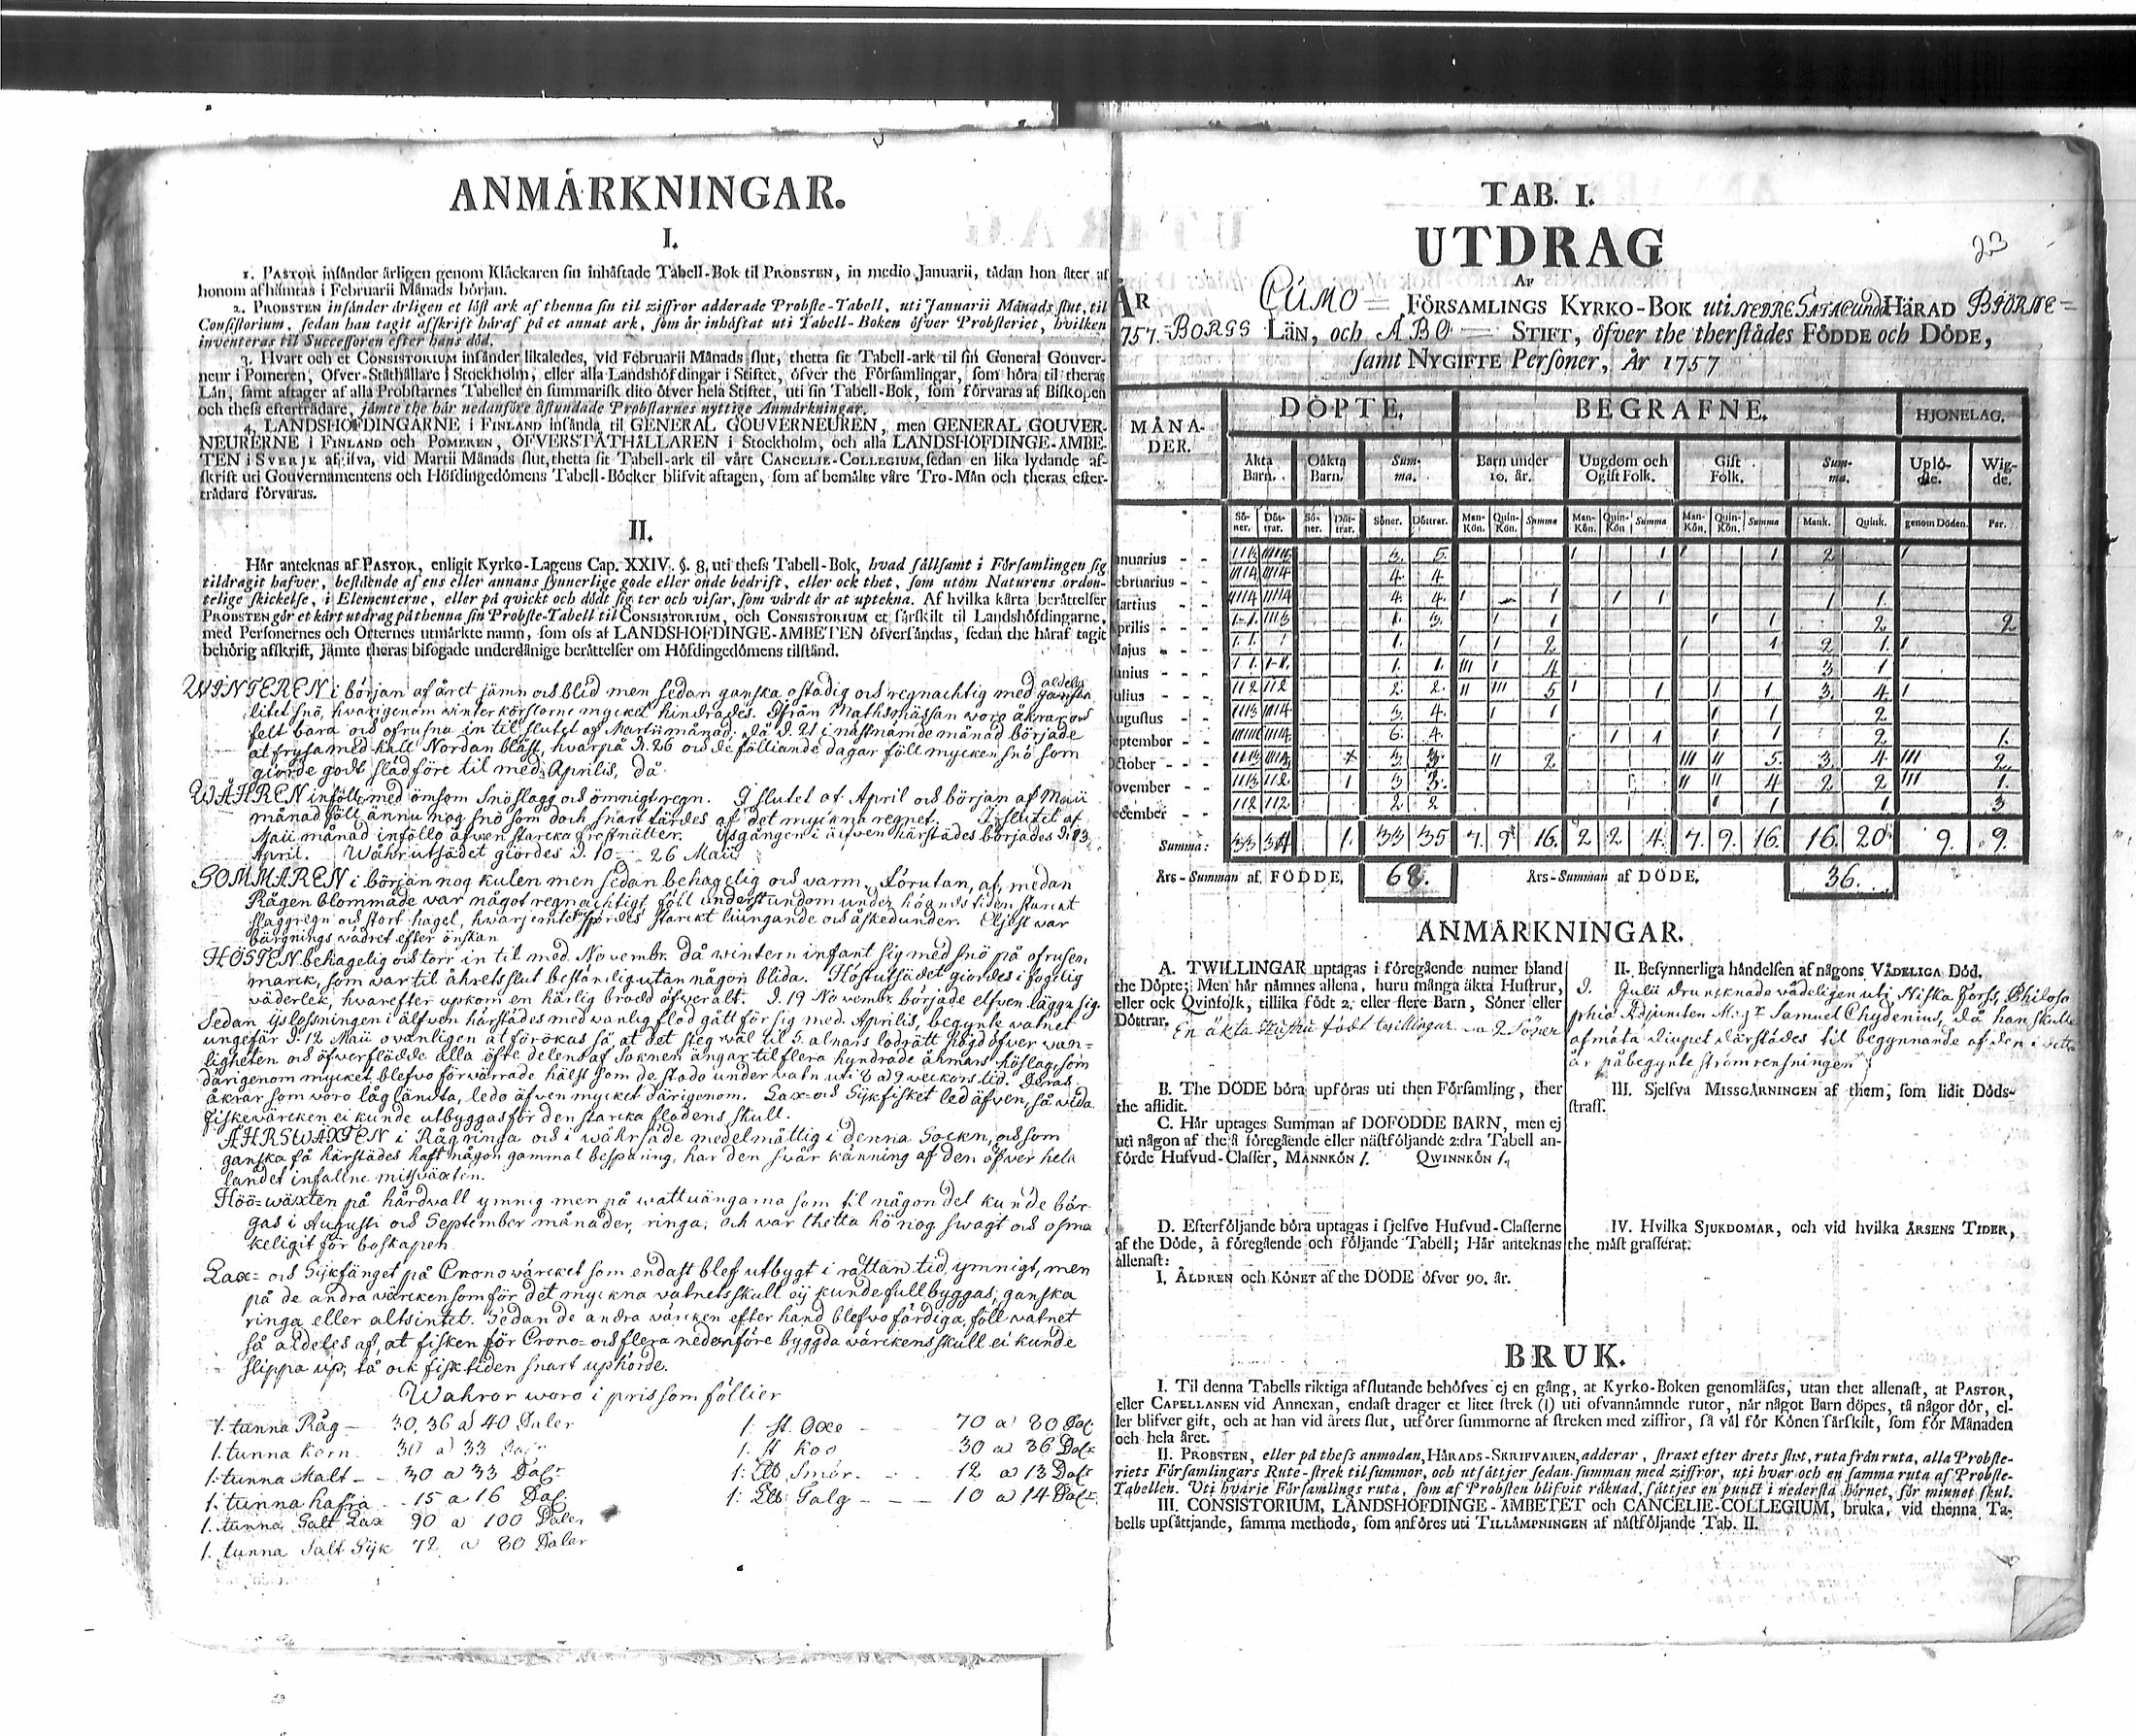 ANMÅRKNINGAR.
I.
1. PASTOR insånder årligen genom Klåckaren sin inhåftade Tabell-Bok til PROBSTEN, in medio Januarii, tådan hon åter af
honom afhåmtas i Februarii Månads början.
2. PROBSTEN insånder årligen et löst ark af thenna sin til ziffror adderade Probste-Tabell, uti Januarii Månads slut, til
Consistorium, sedan han tagit afskrift håraf på et annat ark, som år inhåftat uti Tabell-Boken öfver Probsteriet, hvilken
inventeras til Successoren efter hans död.
3. Hvart och et CONSISTORIUM insånder likaledes, vid Februarii Månads slut, thetta sit Tabell-ark til sin General Gouver-
neur i Pomeren, Öfver-Ståthållare i Stockholm, eller alla Landshöfdingar i Stiftet, öfver the Församlingar, som höra til theras
Lån, samt aftager af alla Probstarnes Tabeller en summarisk dito öfver hela Stiftet, uti sin Tabell-Bok, som förvaras af Biskopen
och thess eftertrådare, jåmte the hår nedanföre åstundade Probstarnes nyttige Anmårkningar.
4. LANDSHÖFDINGARNE i FINLAND insånda til GENERAL GOUVERNEUREN, men GENERAL GOUVER-
NEURERNE i FINLAND och POMEREN, ÖFVERSTÅTHÅLLAREN i Stockholm, och alla LANDSHÖFDINGE-ÅMBE-
TEN i SVERJE afgifva, vid Martii Månads slut, thetta sit Tabell-ark til vårt CANCELIE-COLLEGIUM, sedan en lika lydande af-
skrift uti Gouvernamentens och Höfdingedömens Tabell-Böcker blifvit aftagen, som af bemålte våre Tro-Mån och theras efter-
trådare förvaras.
II.
Hår anteknas af PASTOR, enligit Kyrko-Lagens Cap. XXIV. §. 8, uti thess Tabell-Bok, hvad sållsamt i Församlingen sig
tildragit hafver, bestående af ens eller annans synnerlige gode eller onde bedrift, eller ock thet, som utom Naturens ordon-
telige skickelse, i Elementerne, eller på qvickt och dödt sig ter och visar, som vårdt år at uptekna. Af hvilka kårta beråttelser
PROBSTEN gör et kårt utdrag på thenna sin Probste-Tabell til CONSISTORIUM, och CONSISTORIUM et sårskilt til Landshöfdingarne,
med Personernes och Orternes utmårkte namn, som oss af LANDSHÖFDINGE-ÅMBETEN öfversåndas, sedan the håraf tagit
behörig afskrift, jåmte theras bifogade underdånige beråttelser om Höfdingedömens tilstånd.
WINTEREN i början af året jämn och blid men sedan ganska ostadig och regnachtig med aldeles
litet snö, hvarigenom winterkörslorne mycket hindrades. Ifrån Mathsmässan woro åkrar och
felt bara och ofrusna in til slutet af Martii månad, då d. 21 i nästnämde månad började
at frysa med kall Nordan bläst, hvarpå d. 26 och de följiande dagar föll mycken snö som
giorde godt slädföre til med. Aprilis, då
WÅHREN inföll med ömsom Snöslagg och ömnigt regn. I slutet af April och början af Maii
månad föll ännu nog snö som doch snart tärdes af det myckna regnet. I slutet af
Maii månad infölle äfven starcka frostnätter. Isgången i älfven härstädes börjades d. 13
April. Wåhrutsädet giordes d. 10 - 26 Maii.
SOMMAREN i början nog kulen men sedan behagelig och varm. Förutan, at, medan
Rågen blommade var något regnachtigt, föll understundom under höandstiden starkt
slaggregn och stort hagel, hwarjemte spordes starckt liungande och åskedunder. Eljest war
bärgnings wädret efter önskan
HÖSTEN behagelig och torr in til med. Novembr. då wintern infant sig med snö på ofrusen
marck, som war til åhrets slut beständig utan någon blida. Höstutsädet giordes i fogelig
väderlek, hvarefter upkom en härlig brodd öfveralt. d. 19 Novembr. började elfven lägga sig.
Sedan islossningen i älfven härstädes med vanlig flod gått för sig med. Aprilis, begynte watnet
ungefär d. 12 Maii ovanligen at förökas så, at det steg wäl til 5. alnars lodrätt högd öfver wan-
ligheten och öfverflödde alla öfre delens af Soknen ängar til flera hundrade åkmans höslag, som
därigenom mycket blefvo förvärrade hälst som de stodo under vatn uti 8 a 9 veckors tid. Deras
åkrar som woro lågländta, ledo äfven mycket därigenom. Lax- och Sijkfisket led äfven, så vida
fiskewärcken ei kunde utbyggas för den starcka flodens skull.
ÅHRSWÄXTEN i Råg ringa och i wåhrsäde medelmåttig i denna Sockn, och som
ganska få härstädes haft någon gammal bespaning, har den swår känning af den öfver hela
landet infallne missväxten.
Höö-wäxten på hårdwall ymnig men på wattuängarna som til någon del kunde bär-
gas i Augusti och September månader, ringa, och var thetta hö nog swagt och osma
keligit för boskapen
Lax- och Sijkfänget på Cronowärcket som endast blef utbygt i rättan tid, ymnigt, men
på de andra värcken som för det myckna vatnets skull eij kunde full byggas, ganska
ringa eller altsintet. Sedan de andra värcken efter hand blefvo färdiga, föll vatnet
så aldeles af, at fisken för Crono- och flera nedanföre byggda wärckens skull ei kunde
slippa up, så och fisktiden snart uphörde.
Wahror woro i pris som föllier
1. tunna Råg — 30, 36 a 40 Daler
1. tunna Korn - 30 a 33 Daler
1. tunna Malt - - 30 a 33 Dal:r
1. tunna hafra - - 15 a 16 Dal:
1. tunna Salt Lax 90 a 100 Daler
1. tunna Salt Sijk 72 a 80 Daler
1. st. Oxe - - 70 a 80 Dal:
1. st Koo - 30 a 36 Dal:r
1. Lb Smör - - 12 a 13 Dal:r
1. Lb Talg - - - 10 a 14 Dal:r
23
TAB. I.
UTDRAG
AF
ÅR 1757. CUMO — FÖRSAMLINGS KYRKO-BOK uti NEDRE SATACUNDA HÄRAD BJÖRNE-
BORGS LÄN, och ÅBO — STIFT, öfver the therstådes FÖDDE och DÖDE,
samt NYGIFTE Personer, År 1757
MÅNA-DER. DÖPTE. BEGRAFNE. HJONELAG.
Åkta Barn. Oåkta Barn. Sum-ma. Barn under 10. år. Ungdom och Ogift Folk. Gift Folk. Sum-ma. Uplö-ste. Wig-de.
Sö-ner. Döt-trar. Sö-ner. Döt-trar. Söner. Döttrar. Man-Kön. Quin-Kön. Summa Man-Kön. Quin-Kön. Summa Man-Kön. Quin-Kön. Summa Mank. Quink. genom Döden. Par.
anuarius - - 3. 5. 1 1 1 1 2 1
ebruarius - - 4. 4.
Martius - - 4. 4. 1 1 1 1 1 1.
Aprilis - - 1. 3. 1 1 1 1 2 2
Majus - - 1. 1 1 2 1 1 2 1. 1
unius - - 1. 1. III 1 4 3 1
ulius - - 2. 2. II III 5 1 1 1 1 3 4 1
ugustus - - 3 4. 1 1 1 1 2
eptember - - 6. 4. 1 1 1 1 2 1.
ktober - - 3 3. II 2 III II 5. 3. 4. III 2
ovember - - 1 3 3. II II 4 2 2 III 1.
ecember - - 2 2 1 1 1 3
Summa: 33 34 1. 33 35 7. 9 16. 2 2 4. 7. 9. 16. 16. 20 9. 9.
Års-Summan af FÖDDE. 68. Års-Summan af DÖDE. 36.
ANMÅRKNINGAR.
A. TWILLINGAR uptagas i föregående numer bland
the Döpte; Men hår nåmnes allena, huru många åkta Hustrur,
eller ock Qvinfolk, tillika födt 2. eller flere Barn, Söner eller
Döttrar. En äkta Hustru födt twillingar - 2 Söner
B. The DÖDE böra upföras uti then Församling, ther
the aflidit.
C. Hår uptages Summan af DÖFÖDDE BARN, men ej
uti någon af the å föregående eller nåstföljande 2:dra Tabell an-
förde Hufvud-Classer, MANNKÖN 1. QWINNKÖN 1.
D. Efterföljande böra uptagas i sjelfve Hufvud-Classerne
af the Döde, å föregående och följande Tabell; Hår anteknas
allenast:
I. ÅLDREN och KÖNET af the DÖDE öfver 90. år.
II. Besynnerliga håndelsen af någons VÅDELIGA DÖD.
d. Julii drunknade vådeligen uti Niska forss, Philoso
phiæ Adjuncten Mag:r Samuel Chydenius, då han skulle
afmäta diupet därstädes til begynnande af den i detta
år påbegynte strömrensningen
III. Sjelfva MISSGÅRNINGEN af them, som lidit Döds-
straff.
IV. Hvilka SJUKDOMAR, och vid hvilka ÅRSENS TIDER,
the måst grasserat:
BRUK.
I. Til denna Tabells riktiga afslutande behöfves ej en gång, at Kyrko-Boken genomlåses, utan thet allenast, at PASTOR,
eller CAPELLANEN vid Annexan, endast drager et litet strek (I) uti ofvannåmnde rutor, når något Barn döpes, tå någor dör, el-
ler blifver gift, och at han vid årets slut, utförer summorne af streken med ziffror, så vål för Könen sårskilt, som för Månaden
och hela året.
II. PROBSTEN, eller på thess anmodan, HÅRADS-SKRIFVAREN, adderar, straxt efter årets slut, ruta från ruta, alla Probste-
riets Församlingars Rute-strek til summor, och utsåttjer sedan summan med ziffror, uti hvar och en samma ruta af Probste-
Tabellen. Uti hvarje Församlings ruta, som af Probsten blifvit råknad, såttjes en punct i nedersta hörnet, för minnet skul.
III. CONSISTORIUM, LANDSHÖFDINGE-ÅMBETET och CANCELIE-COLLEGIUM, bruka, vid thenna Ta-
bells upsåttjande, samma methode, som anföres uti TILLÅMPNINGEN af nåstföljande Tab. II.